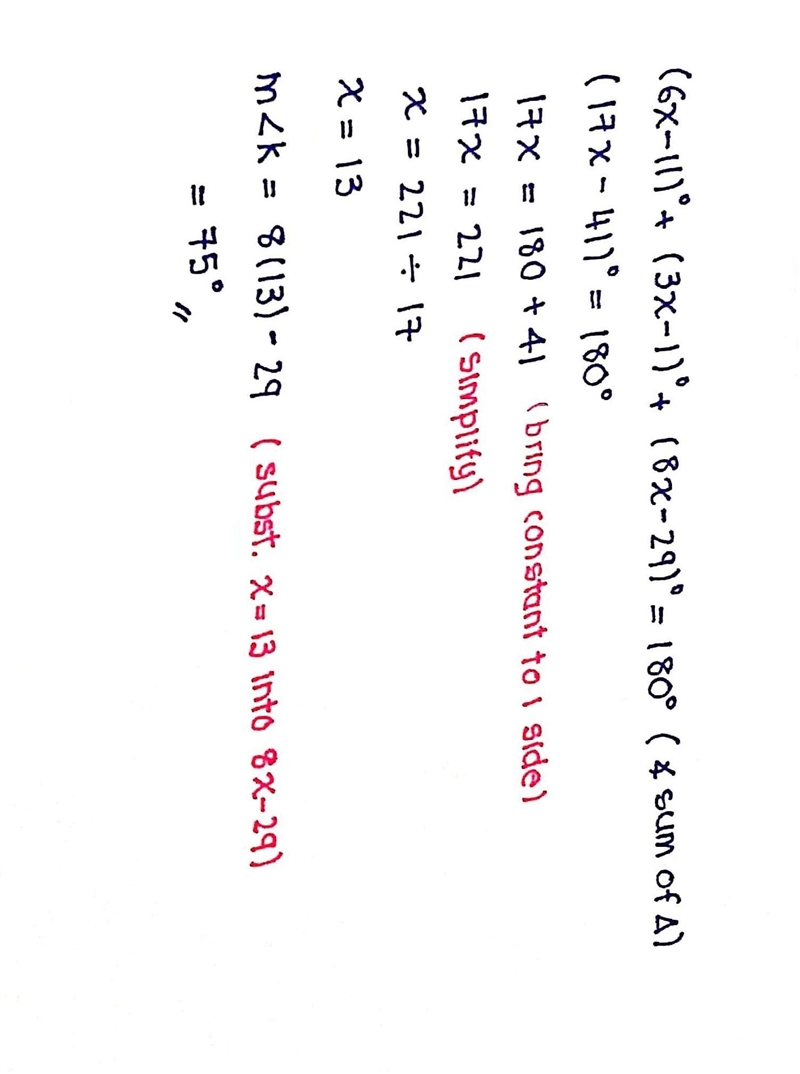 (6x-11)° + (3x-1)° + (8x-29)° = 180° (∡ sum of Δ)
(17x - 41)° = 180°
17x = 180 + 41 (bring constant to 1 side)
17x = 221 (simplify)
x = 221 ÷ 17
x = 13
m∠k = 8(13) - 29 (subst. x = 13 into 8x-29)
= 75° 〃